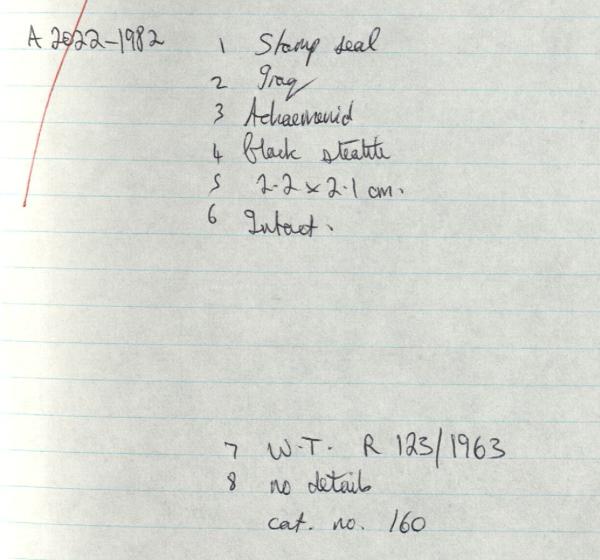 A 2022-1982 1 Stamp seal
2 Iraq
3 Achaemenid
4 Black steatite
5 2.2 x 2.1 cm.
6 Intact.
7 W.T. R 123/1963
8 no details
cat. no. 160